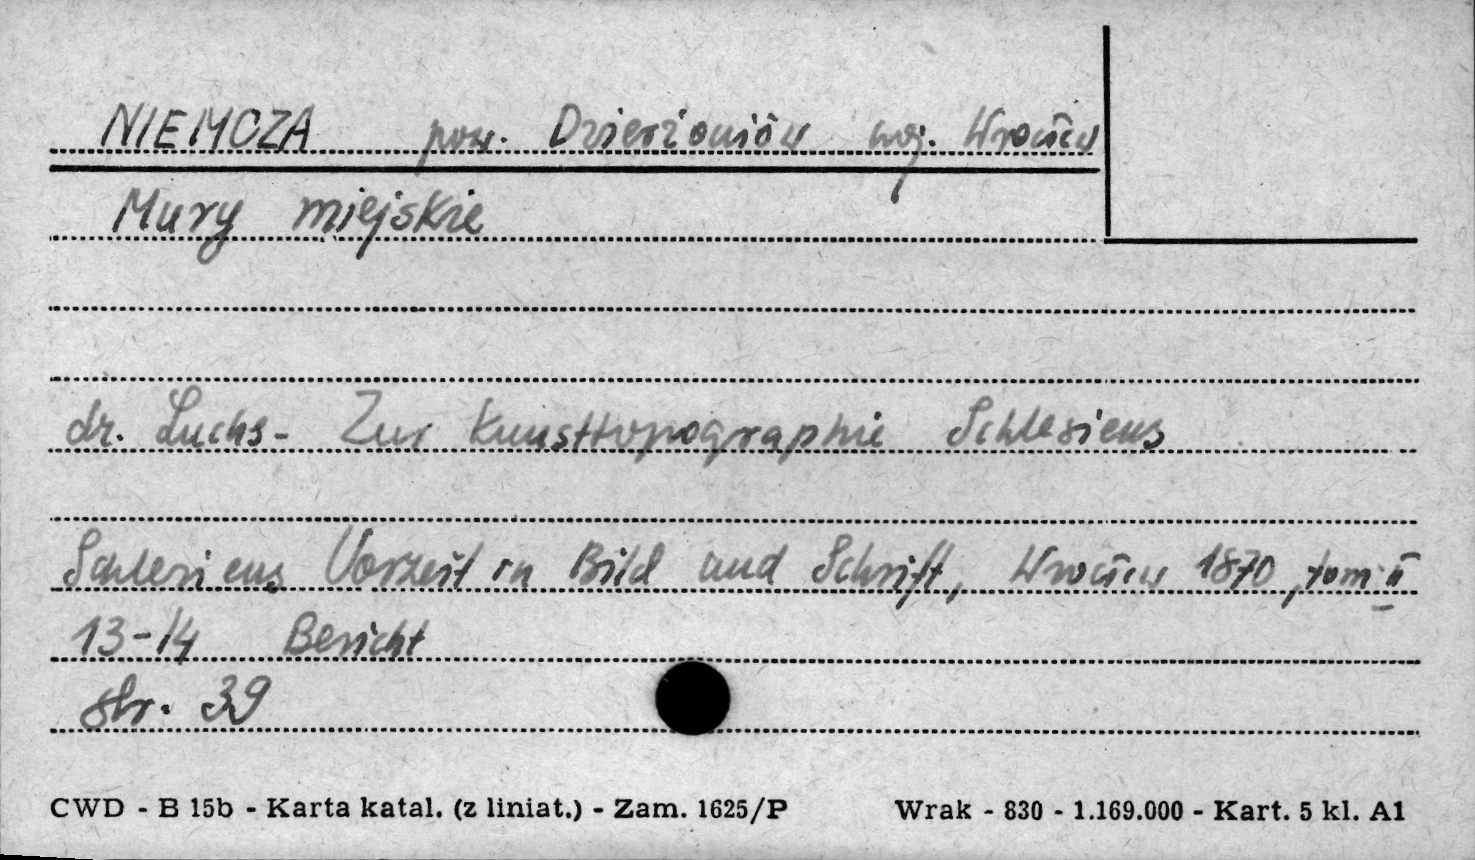 NIEMCZA pow. Dzierżoniów woj. Wrocław
Mury miejskie
dr. Luchs - Zur Kunsttopographie Schlesiens
Schlesiens Vorzeit in Bild und Schrift, Wrocław 1870, tom II
13-14 Bericht
str. 39
CWD - B 15b - Karta katal. (z liniat.) - Zam. 1625/P Wrak - 830 - 1.169.000 - Kart. 5 kl. A1